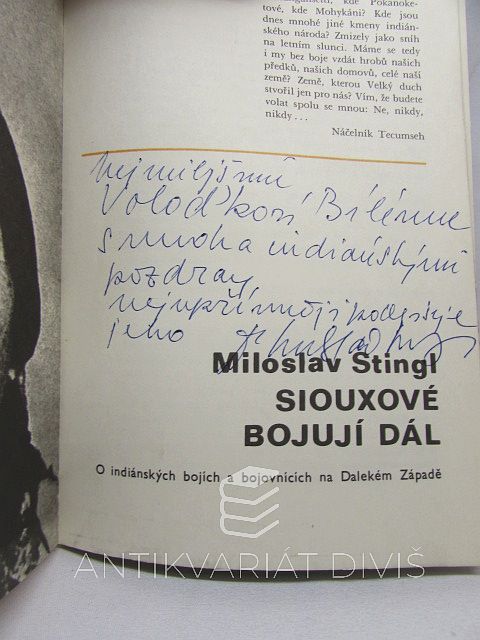 kde Pokanoke-
tové, kde Mohykáni? Kde jsou
dnes mnohé jiné kmeny indián-
ského národa? Zmizely jako sníh
na letním slunci. Máme se tedy
i my bez boje vzdát hrobů našich
předků, našich domovů, celé naší
země? Země, kterou Velký duch
stvořil jen pro nás? Vím, že budete
volat spolu se mnou: Ne, nikdy,
nikdy . . .
Náčelník Tecumseh
Nejmilejšímu
Voloďkovi Bílému
s mnoha indiánskými
pozdravy
nejupřímněji podepisuje
jeho
Miloslav Stingl
SIOUXOVÉ
BOJUJÍ DÁL
O indiánských bojích a bojovnících na Dalekém Západě
ANTIKVARIÁT DIVIŠ